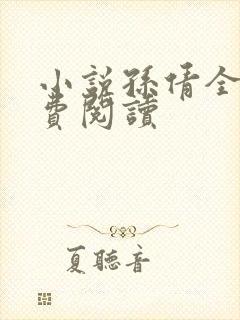 小說孫倩全
費閱讀
夏聽音